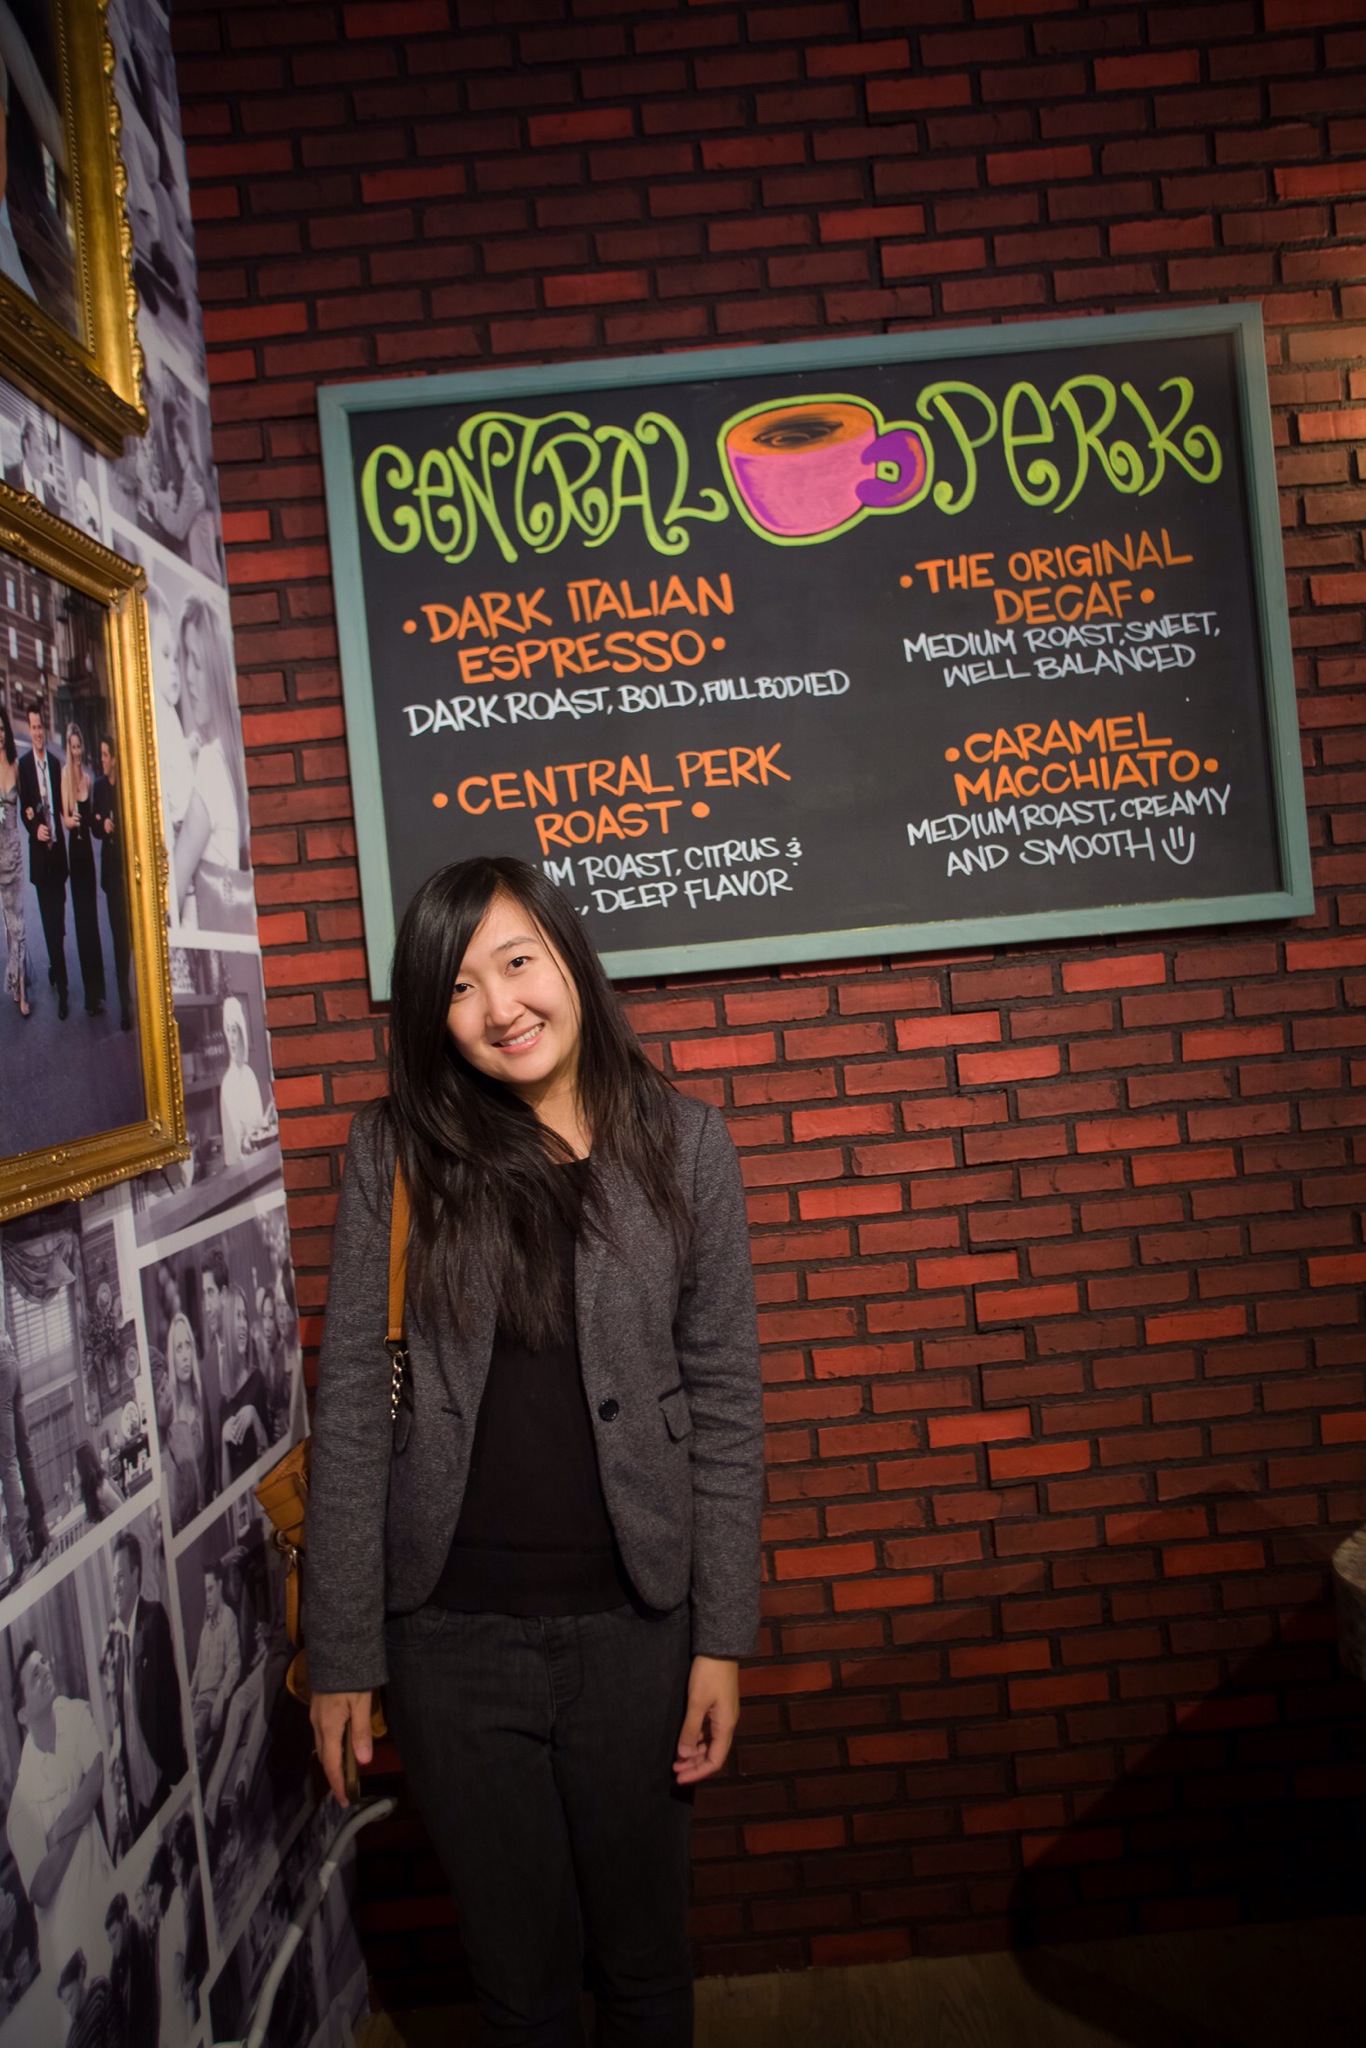 CENTRAL PERK
• DARK ITALIAN
ESPRESSO •
DARK ROAST, BOLD, FULL BODIED
• CENTRAL PERK
ROAST •
ROAST, CITRUS &
DEEP FLAVOR
• THE ORIGINAL
DECAF •
MEDIUM ROAST, SWEET,
WELL BALANCED
• CARAMEL
MACCHIATO •
MEDIUM ROAST, CREAMY
AND SMOOTH